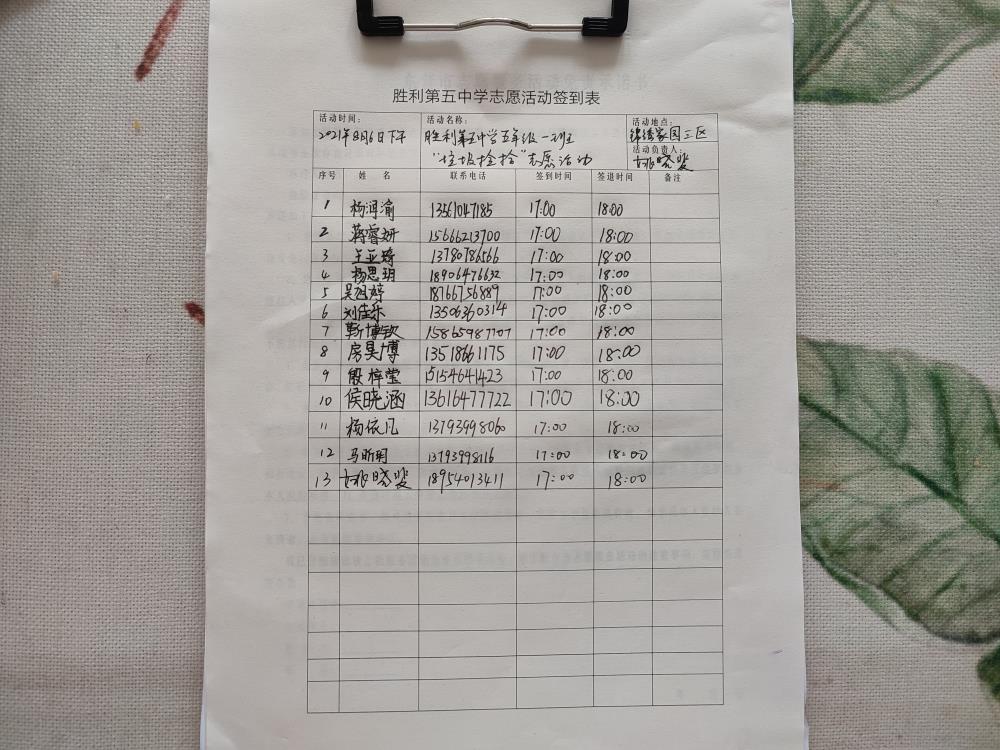 胜利第五中学志愿活动签到表
活动时间： 活动名称： 活动地点：
2021年8月6日下午 胜利第五中学五年级一班 锦绣家园三区
"垃圾捡拾"志愿活动 活动负责人：
姚晓斐
序号 姓名 联系电话 签到时间 签退时间 备注
1 杨洱渝 13561047185 17:00 18:00
2 蒋睿妍 15666213700 17:00 18:00
3 王亚琦 13780786566 17:00 18:00
4 杨思玥 18906476632 17:00 18:00
5 18766756889 17:00 18:00
6 刘佳乐 13506360314 17:00 18:00
7 靳博钦 15865987707 17:00 18:00
8 房昊博 13518661175 17:00 18:00
9 殷梓莹 17:00 18:00
10 侯晓涵 13616477722 17:00 18:00
11 杨依凡 13793998060 17:00 18:00
12 马昕玥 13793998116 17:00 18:00
13 姚晓斐 18954013411 17:00 18:00